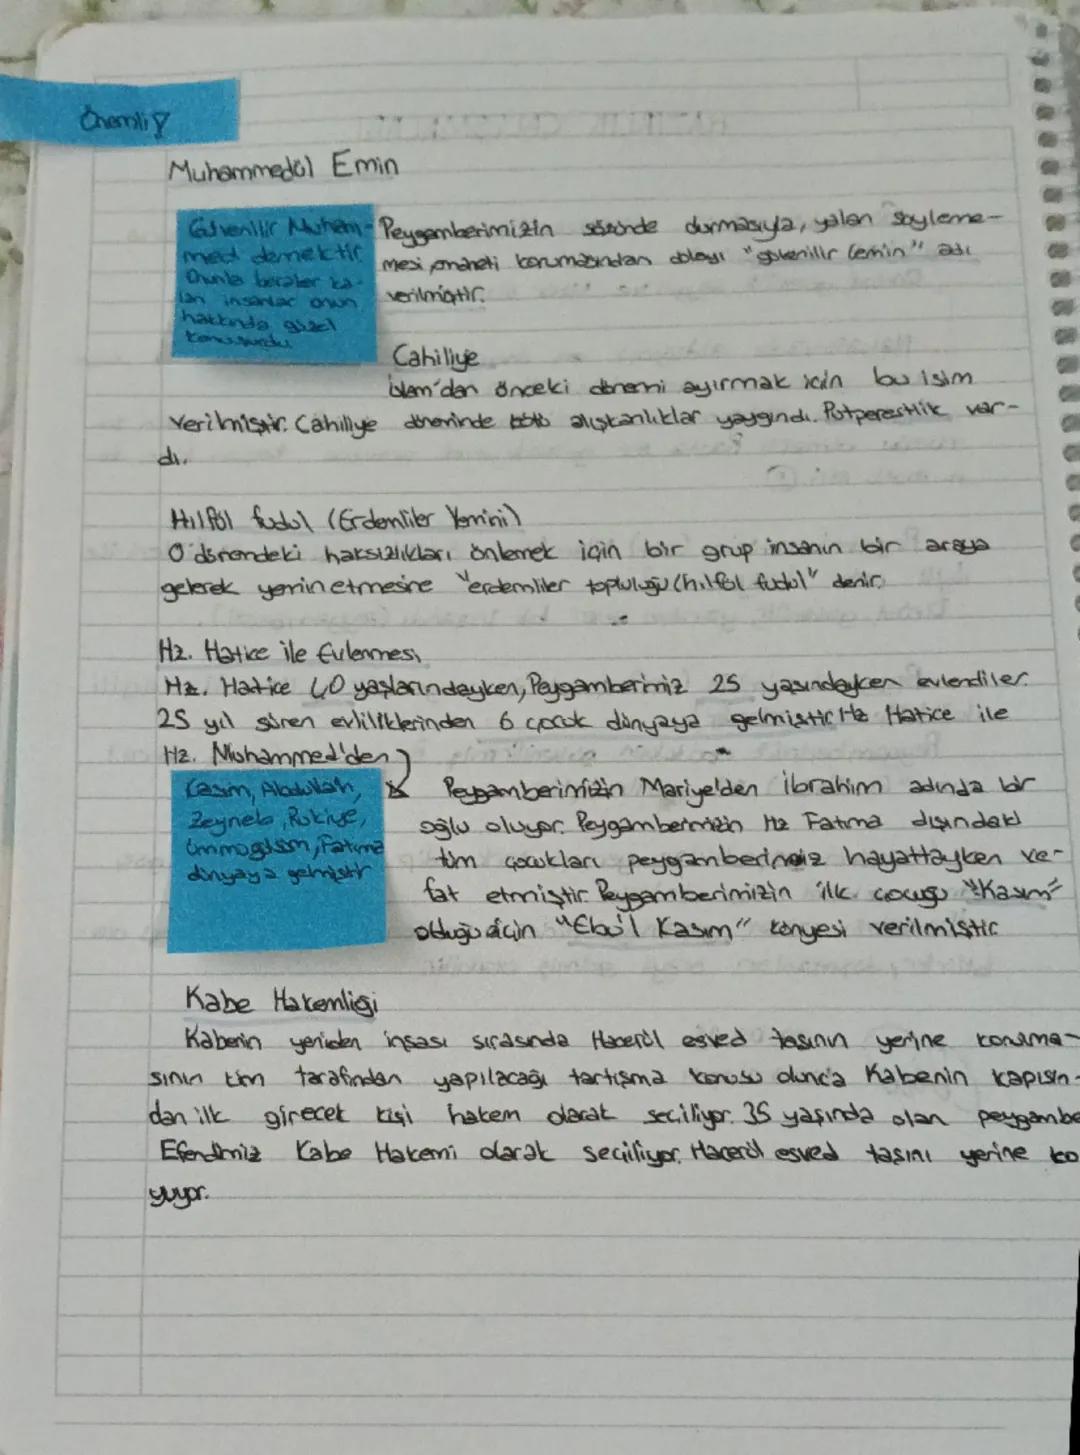 Önemli!
Muhammedül Emin
Güvenilir Muham-
med demektir.
Onunla beraber ka-
lan insanlar onun
hakkında güzel
konuşurdu.
Peygamberimizin sözünde durmasıyla, yalan söyleme-
mesi, emaneti korumasından dolayı "güvenilir (emin)" adı
verilmiştir.
Cahiliye
İslam'dan önceki dönemi ayırmak için bu isim
verilmiştir. Cahiliye döneminde kötü alışkanlıklar yaygındı. Putperestlik var-
dı.
Hilfül fudul (Erdemliler Yemini)
O dönemdeki haksızlıkları önlemek için bir grup insanın bir araya
gelerek yemin etmesine "erdemliler topluluğu (hılfül fudul" denir.
Hz. Hatice ile Evlenmesi
Hz. Hatice 40 yaşlarındayken, Peygamberimiz 25 yaşındayken evlendiler.
25 yıl süren evliliklerinden 6 çocuk dünyaya gelmiştir. Hz Hatice ile
Hz. Muhammed'den
Kasım, Abdullah,
Zeynep, Rukiye,
Ümmügülsüm, Fatıma
dünyaya gelmiştir
Peygamberimizin Mariye'den İbrahim adında bir
oğlu oluyor. Peygamberimizin Hz Fatıma dışındaki
tüm çocukları peygamberimiz hayattayken ve-
fat etmiştir. Peygamberimizin ilk çocuğu "Kasım"
olduğu için "Ebu'l Kasım" künyesi verilmiştir.
Kabe Hakemliği
Kabenin yeniden inşası sırasında Hacerül esved taşının yerine konulma-
sının kim tarafından yapılacağı tartışma konusu olunca Kabenin kapısın-
dan ilk girecek kişi hakem olarak seçiliyor. 35 yaşında olan peygambe
Efendimiz Kabe Hakemi olarak seçiliyor. Hacerül esved taşını yerine ko
yuyor.